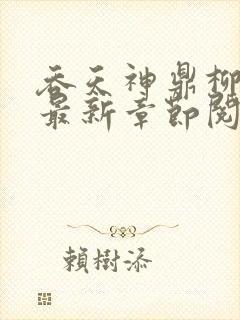 吞天神鼎柳
最新章節閱
賴樹添